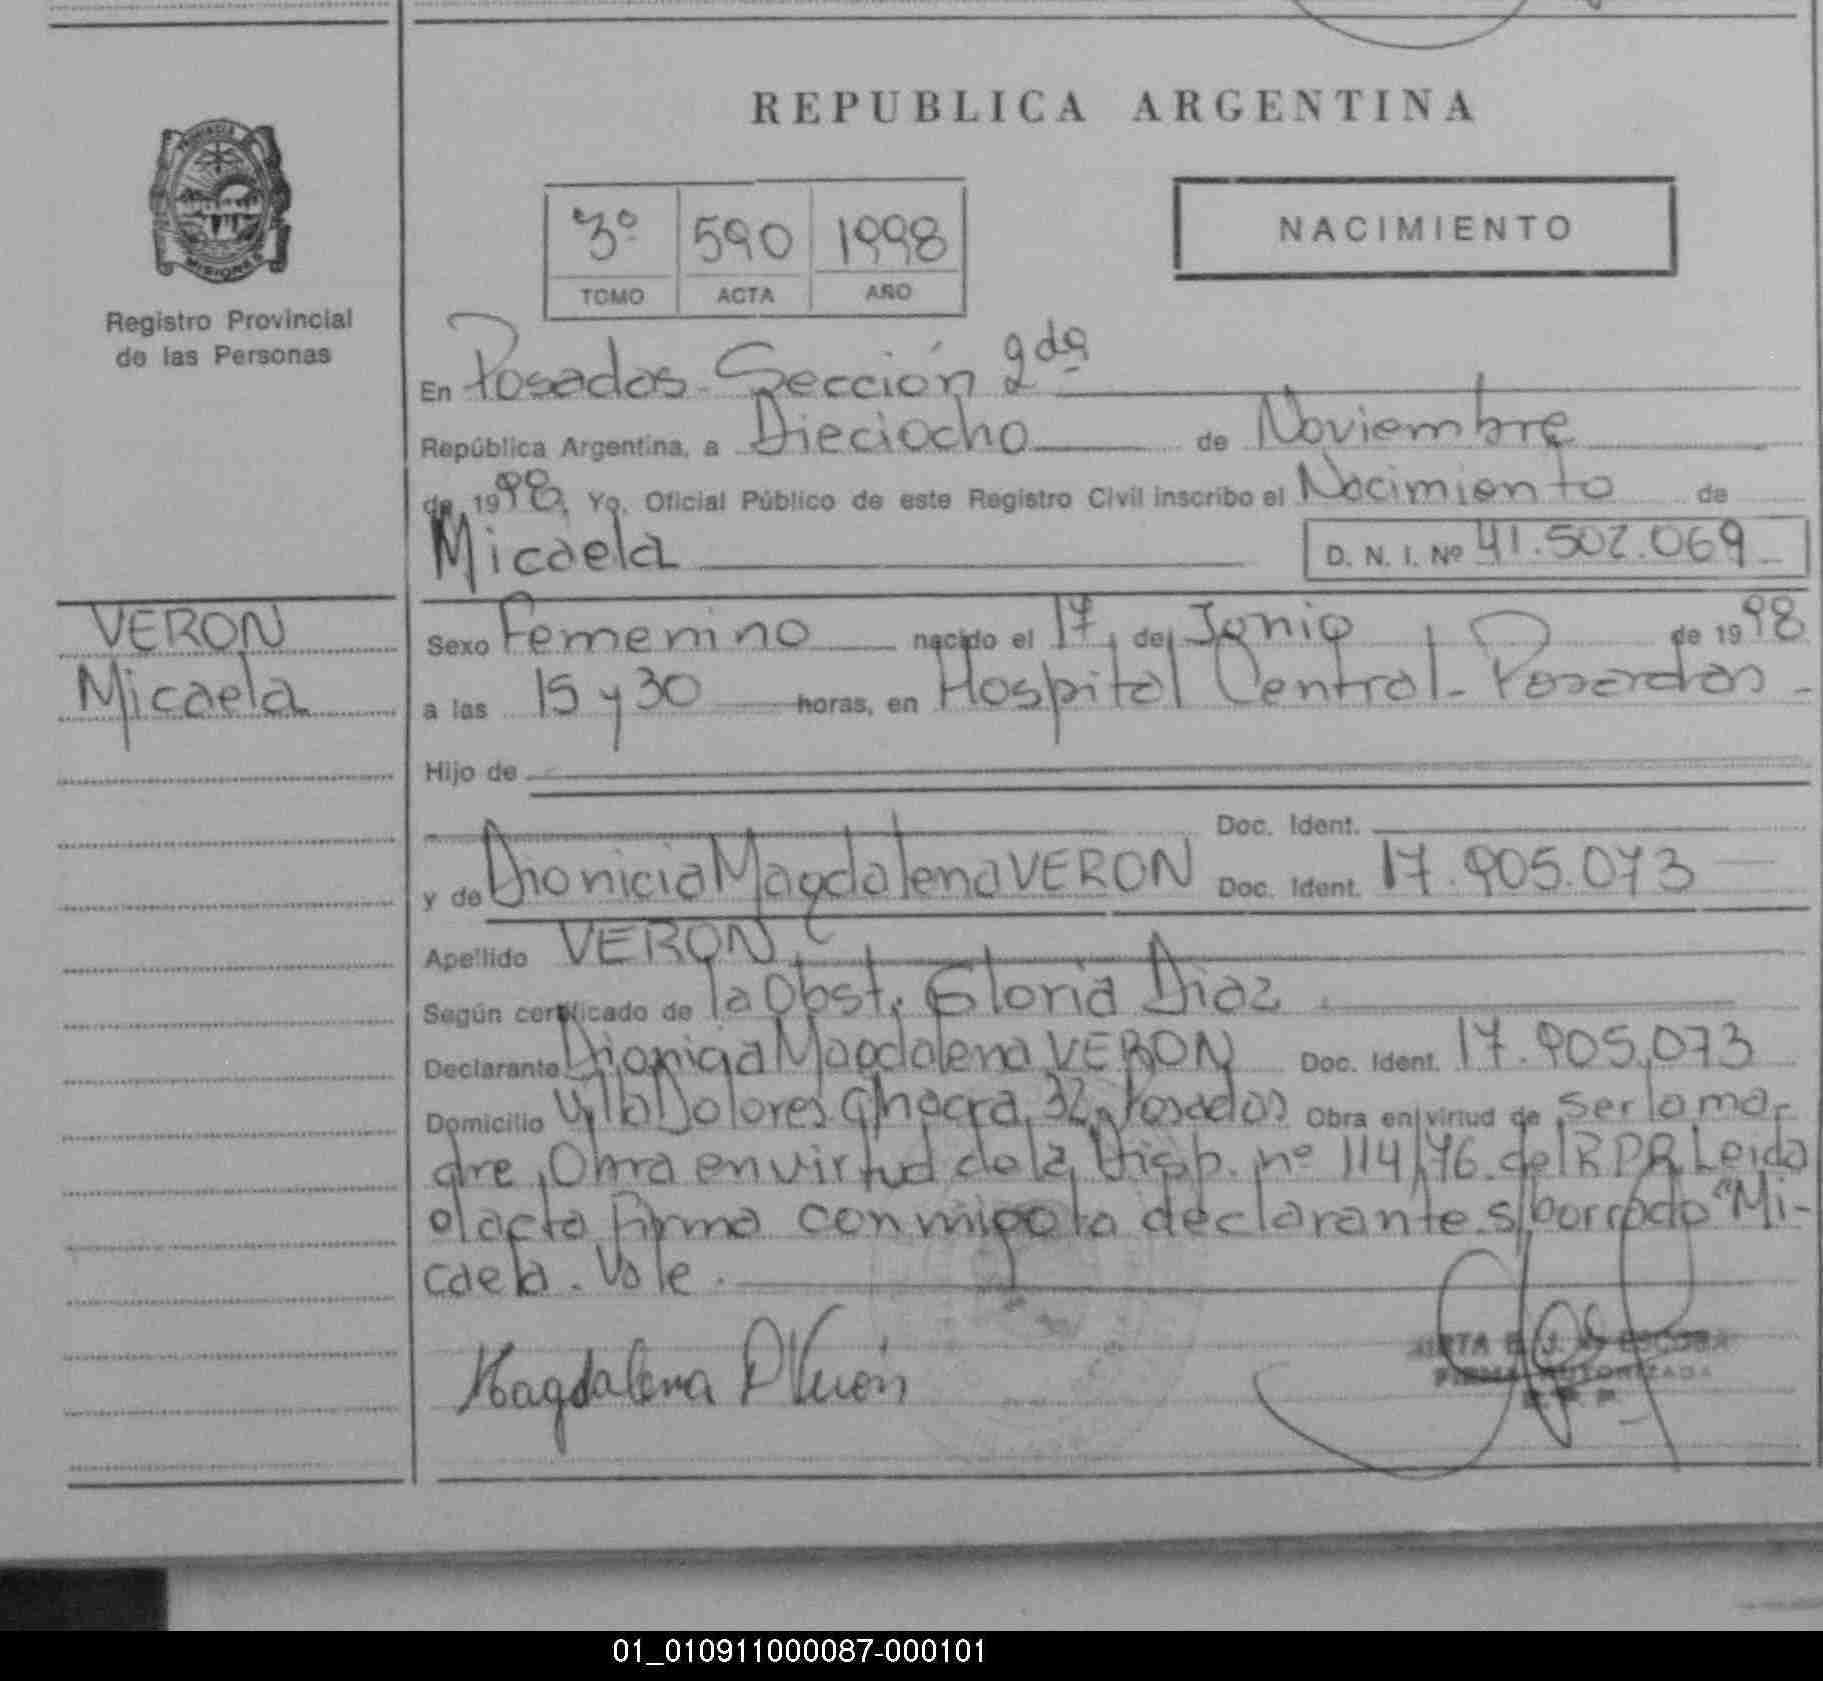 REPUBLICA ARGENTINA
PROVINCIA
MISIONES
Registro Provincial
de las Personas
3º 590 1998
TOMO ACTA AÑO
NACIMIENTO
En Posadas - Sección 2da
República Argentina, a Dieciocho de Noviembre
de 1998, Yo, Oficial Público de este Registro Civil inscribo el Nacimiento de
Micaela D. N. I. Nº 41.502.069
VERON
Micaela
Sexo Femenino nacido el 17 de Junio de 1998
a las 15 y 30 horas, en Hospital Central - Posadas -
Hijo de
Doc. Ident.
y de Dionicia Magdalena VERON Doc. Ident. 17.905.073
Apellido VERON
Según certificado de la Obst. Gloria Diaz
Declarante Dionicia Magdalena VERON Doc. Ident. 17.905.073
Domicilio Villa Dolores Chacra 32 Posadas Obra en virtud de ser la ma-
dre, Obra en virtud de la Disp. nº 114/76 del R.P.P. Leida
el acta firma conmigo la declarante s/borrado "Mi-
caela. Vale.
Magdalena D Veron
ESCOBAR
FIRMA AUTORIZADA
01_010911000087-000101